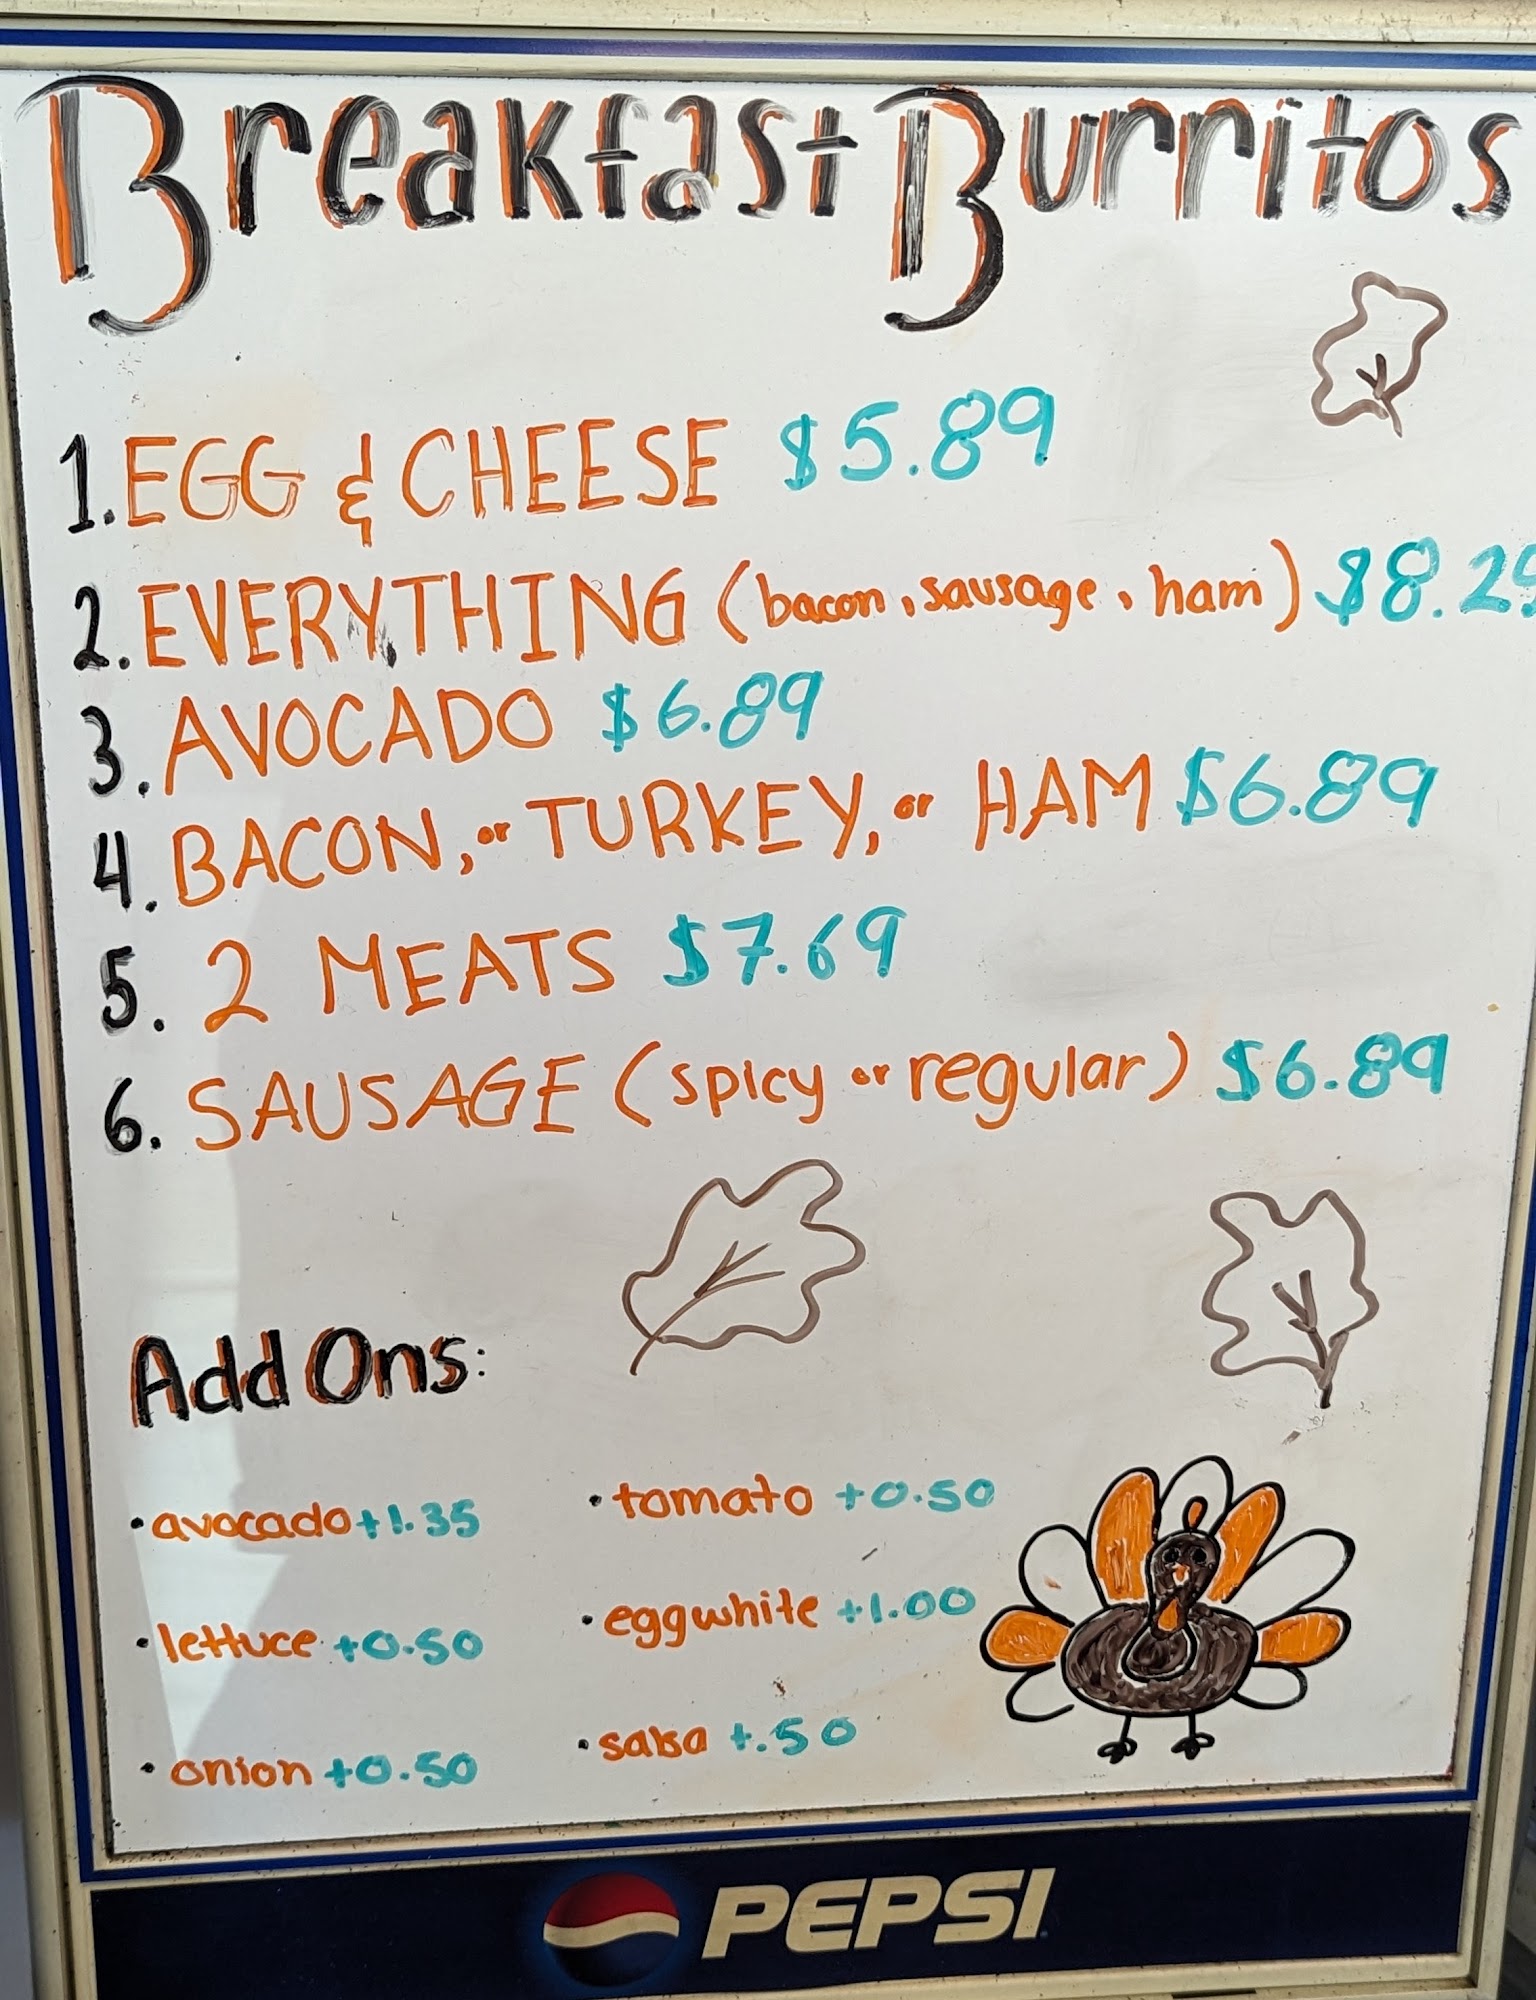 Breakfast Burritos
1. EGG & CHEESE $5.89
2. EVERYTHING (bacon, sausage, ham) $8.25
3. AVOCADO $6.89
4. BACON, or TURKEY, or HAM $6.89
5. 2 MEATS $7.69
6. SAUSAGE (spicy or regular) $6.89
Add Ons:
• avocado +1.35
• tomato +0.50
• lettuce +0.50
• eggwhite +1.00
• onion +0.50
• salsa +.50
PEPSI